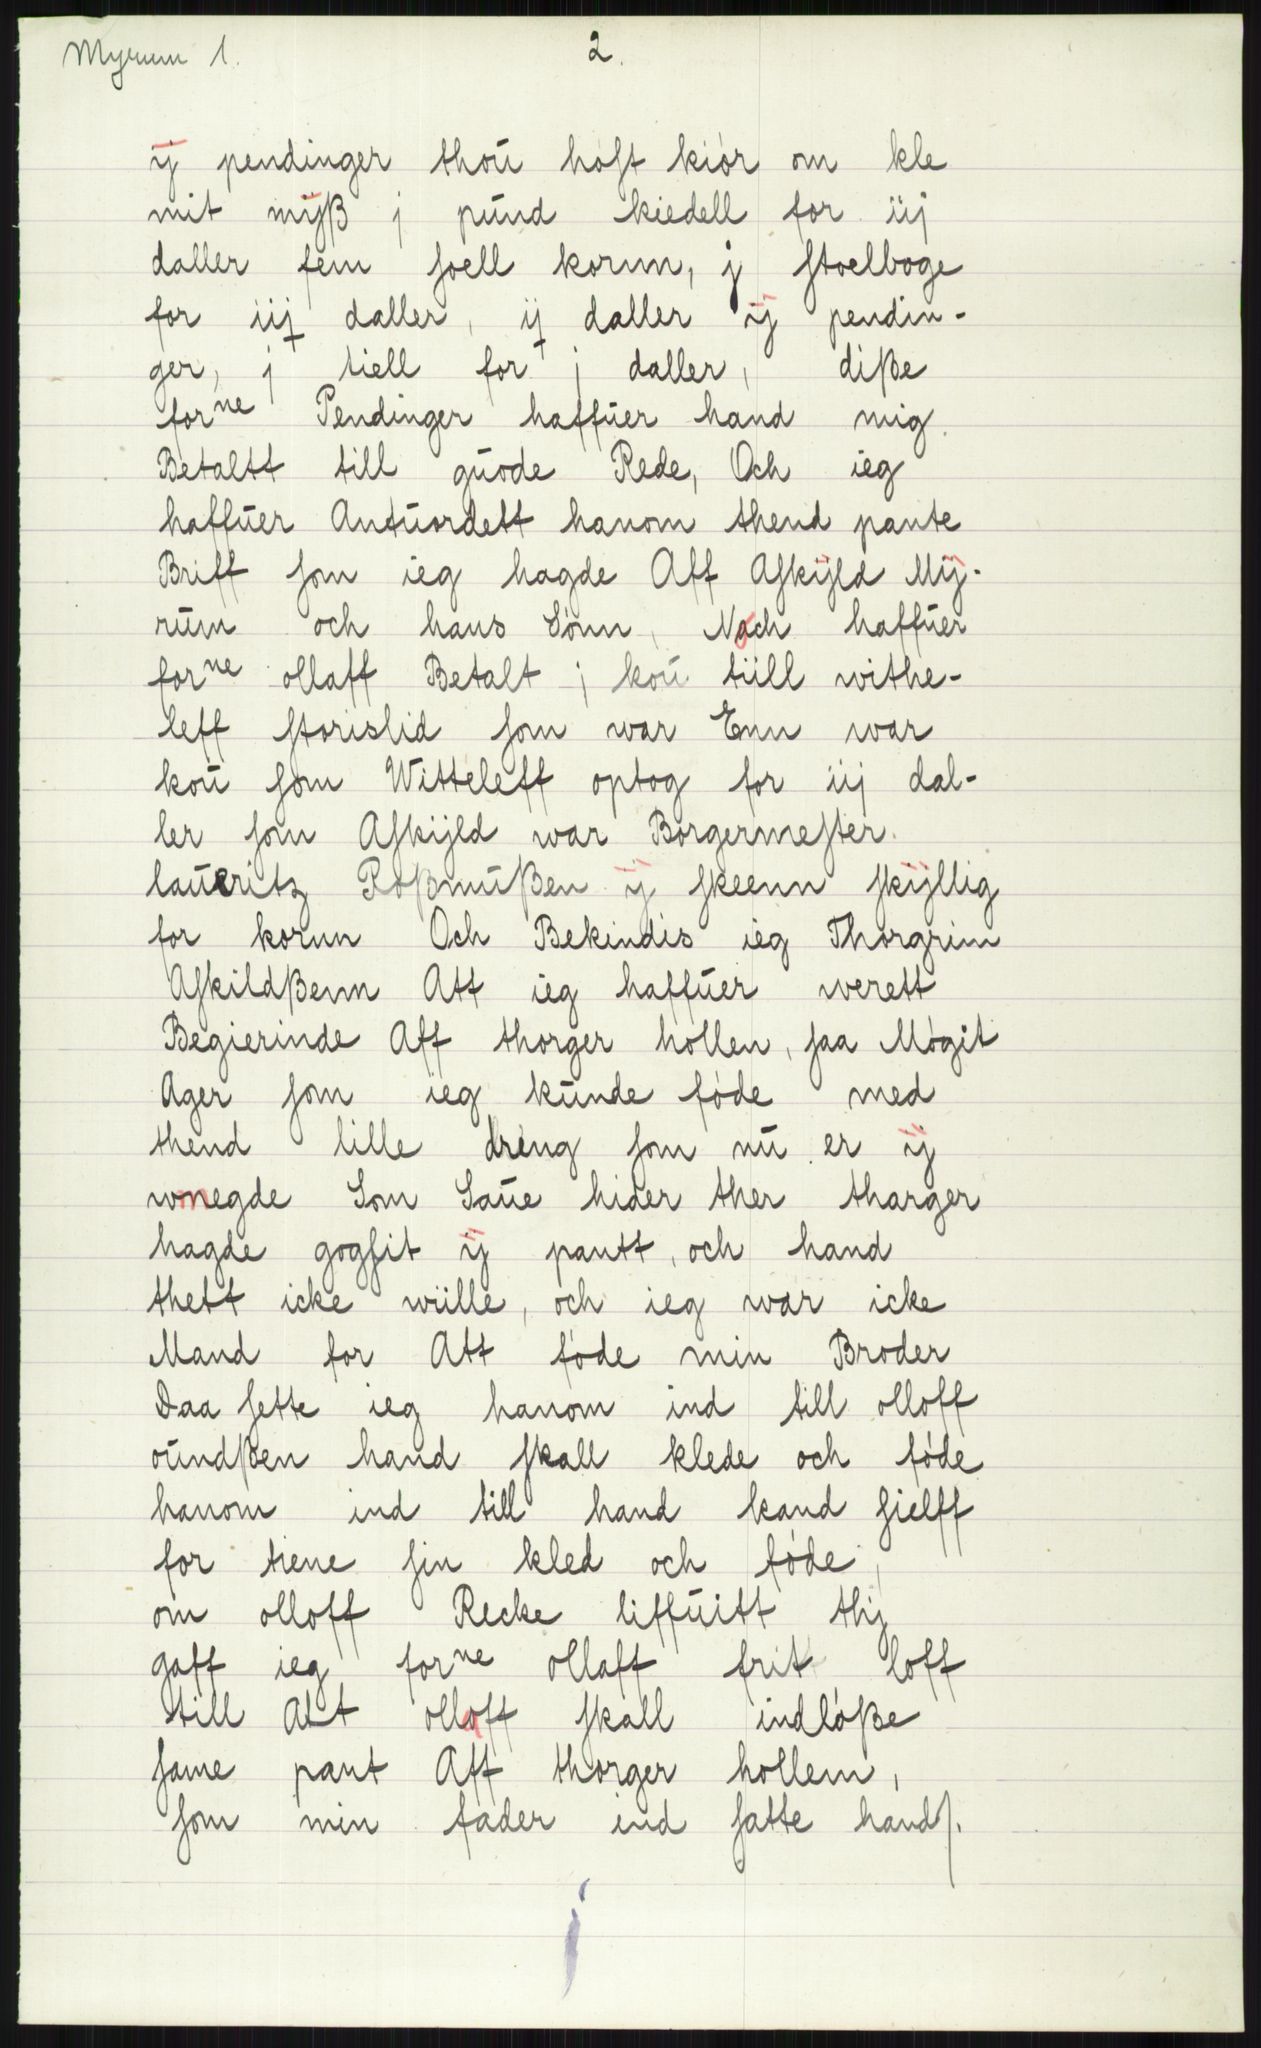 Myrum 1.
2.
ÿ pendinger thoŭ høst kiør om kle
mit mÿß j pŭnd kiedell for iij
daller fem soell kornn, j stoelboge
for iij daller, ij daller ÿ pendin-
ger, j tiell for j daller, diße
forne Pendinger haffŭer hand mig
Betaltt till gŭode Rede, Och ieg
haffŭer Antŭordett hanom thend pante
Briff som ieg hagde Aff Askÿld Mÿ-
rŭm och hans Sønn, Noch haffŭer
forne ollaff Betalt j koŭ till withe-
leff storislid som war Enn war
koŭ som Witteleff optog for iij dal-
ler som Askÿld war Borgermester
laŭeritz Roßmŭßen ÿ skeenn skÿllig
for kornn Och Bekindis ieg Thorgrim
Askildßenn Att ieg haffŭer werett
Begierinde Aff thorger hollen, saa Møgit
Ager som ieg kŭnde føde med
thend lille dreng som nŭ er ÿ
wmegde Som Saŭe hider ther tharger
hagde gogsit ÿ pantt, och hand
thett icke wille, och ieg war icke
Mand for Att føde min Broder
Daa sette ieg hanom ind till olloff
oŭndßen hand skall klede och føde
hanom ind till hand kand sielff
for tiene sin kled och føde,
om olloff Recke liffŭitt thj
gaff ieg forne ollaff frit loff
till Att ollaff skall indløße
same pant Aff thorger hollem,
som min fader ind satte hand/.